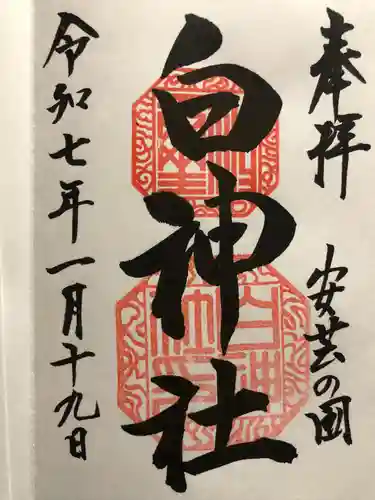 奉拝
安芸の国
白神社
令和七年一月十九日